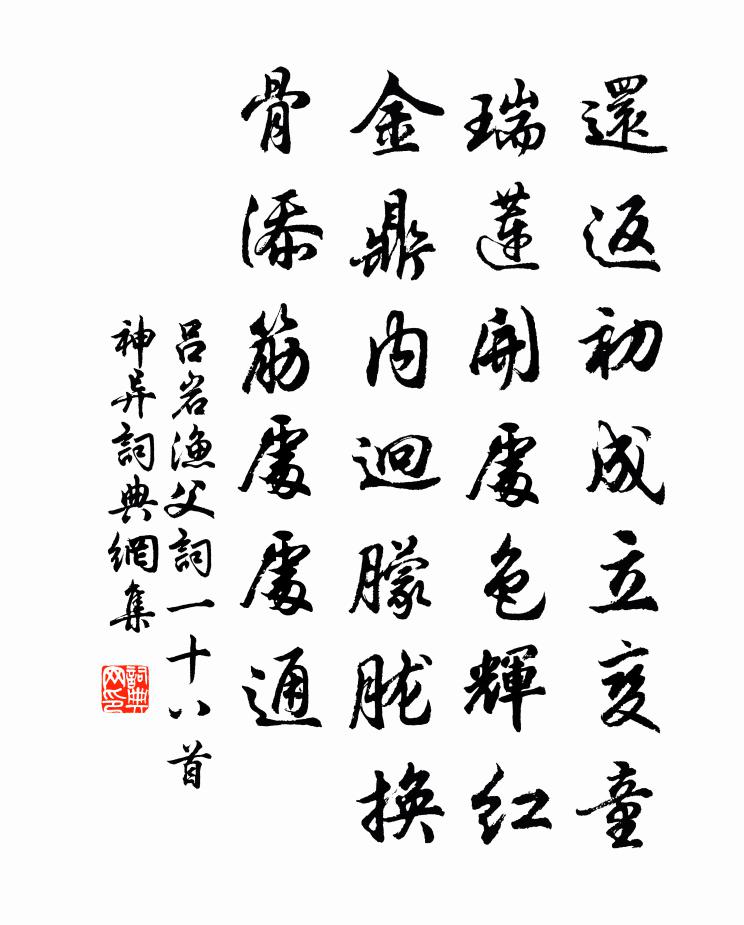 還返初成立變童
瑞蓮開處色輝紅
金鼎内迴朦朧換
骨添筋處處通
吕岩漁父詞一十八首
神异詞典網集
詞典网印